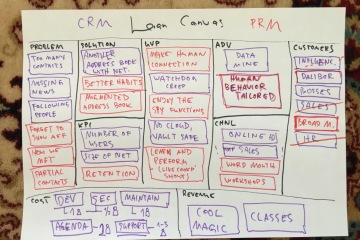 CRM Lean Canvas PRM
PROBLEM
TOO MANY
CONTACTS
MISSING
NEWS
FOLLOWING
PEOPLE
FORGET TO
SHOW AFF
HOW WE
MET
PARTIAL
CONTACTS
SOLUTION
ANOTHER
ADDRESS BOOK
WITH NET
BETTER HABITS
AUGMENTED
ADDRESS BOOK
KPI
NUMBER OF
USERS
SIZE OF NET
RETENTION
UVP
MAKE HUMAN
CONNECTION
WATCHDOG
CREEP
ENJOY THE
SPY FUNCTIONS
NO CLOUD,
VAULT SAFE
LEARN AND
PERFORM
ADV
DATA
MINE
HUMAN
BEHAVIOR
TAILORED
CHNL
ONLINE AD
WORD MOUTH
WORKSHOPS
CUSTOMERS
INFLUENC
DALIBOR
BOSSES
SALES
BROAD M.
HR
COST
DEV
SEC
MAINTAIN
AGENDA
SUPPORT
REVENUE
COOL
MAGIC
CLASSES